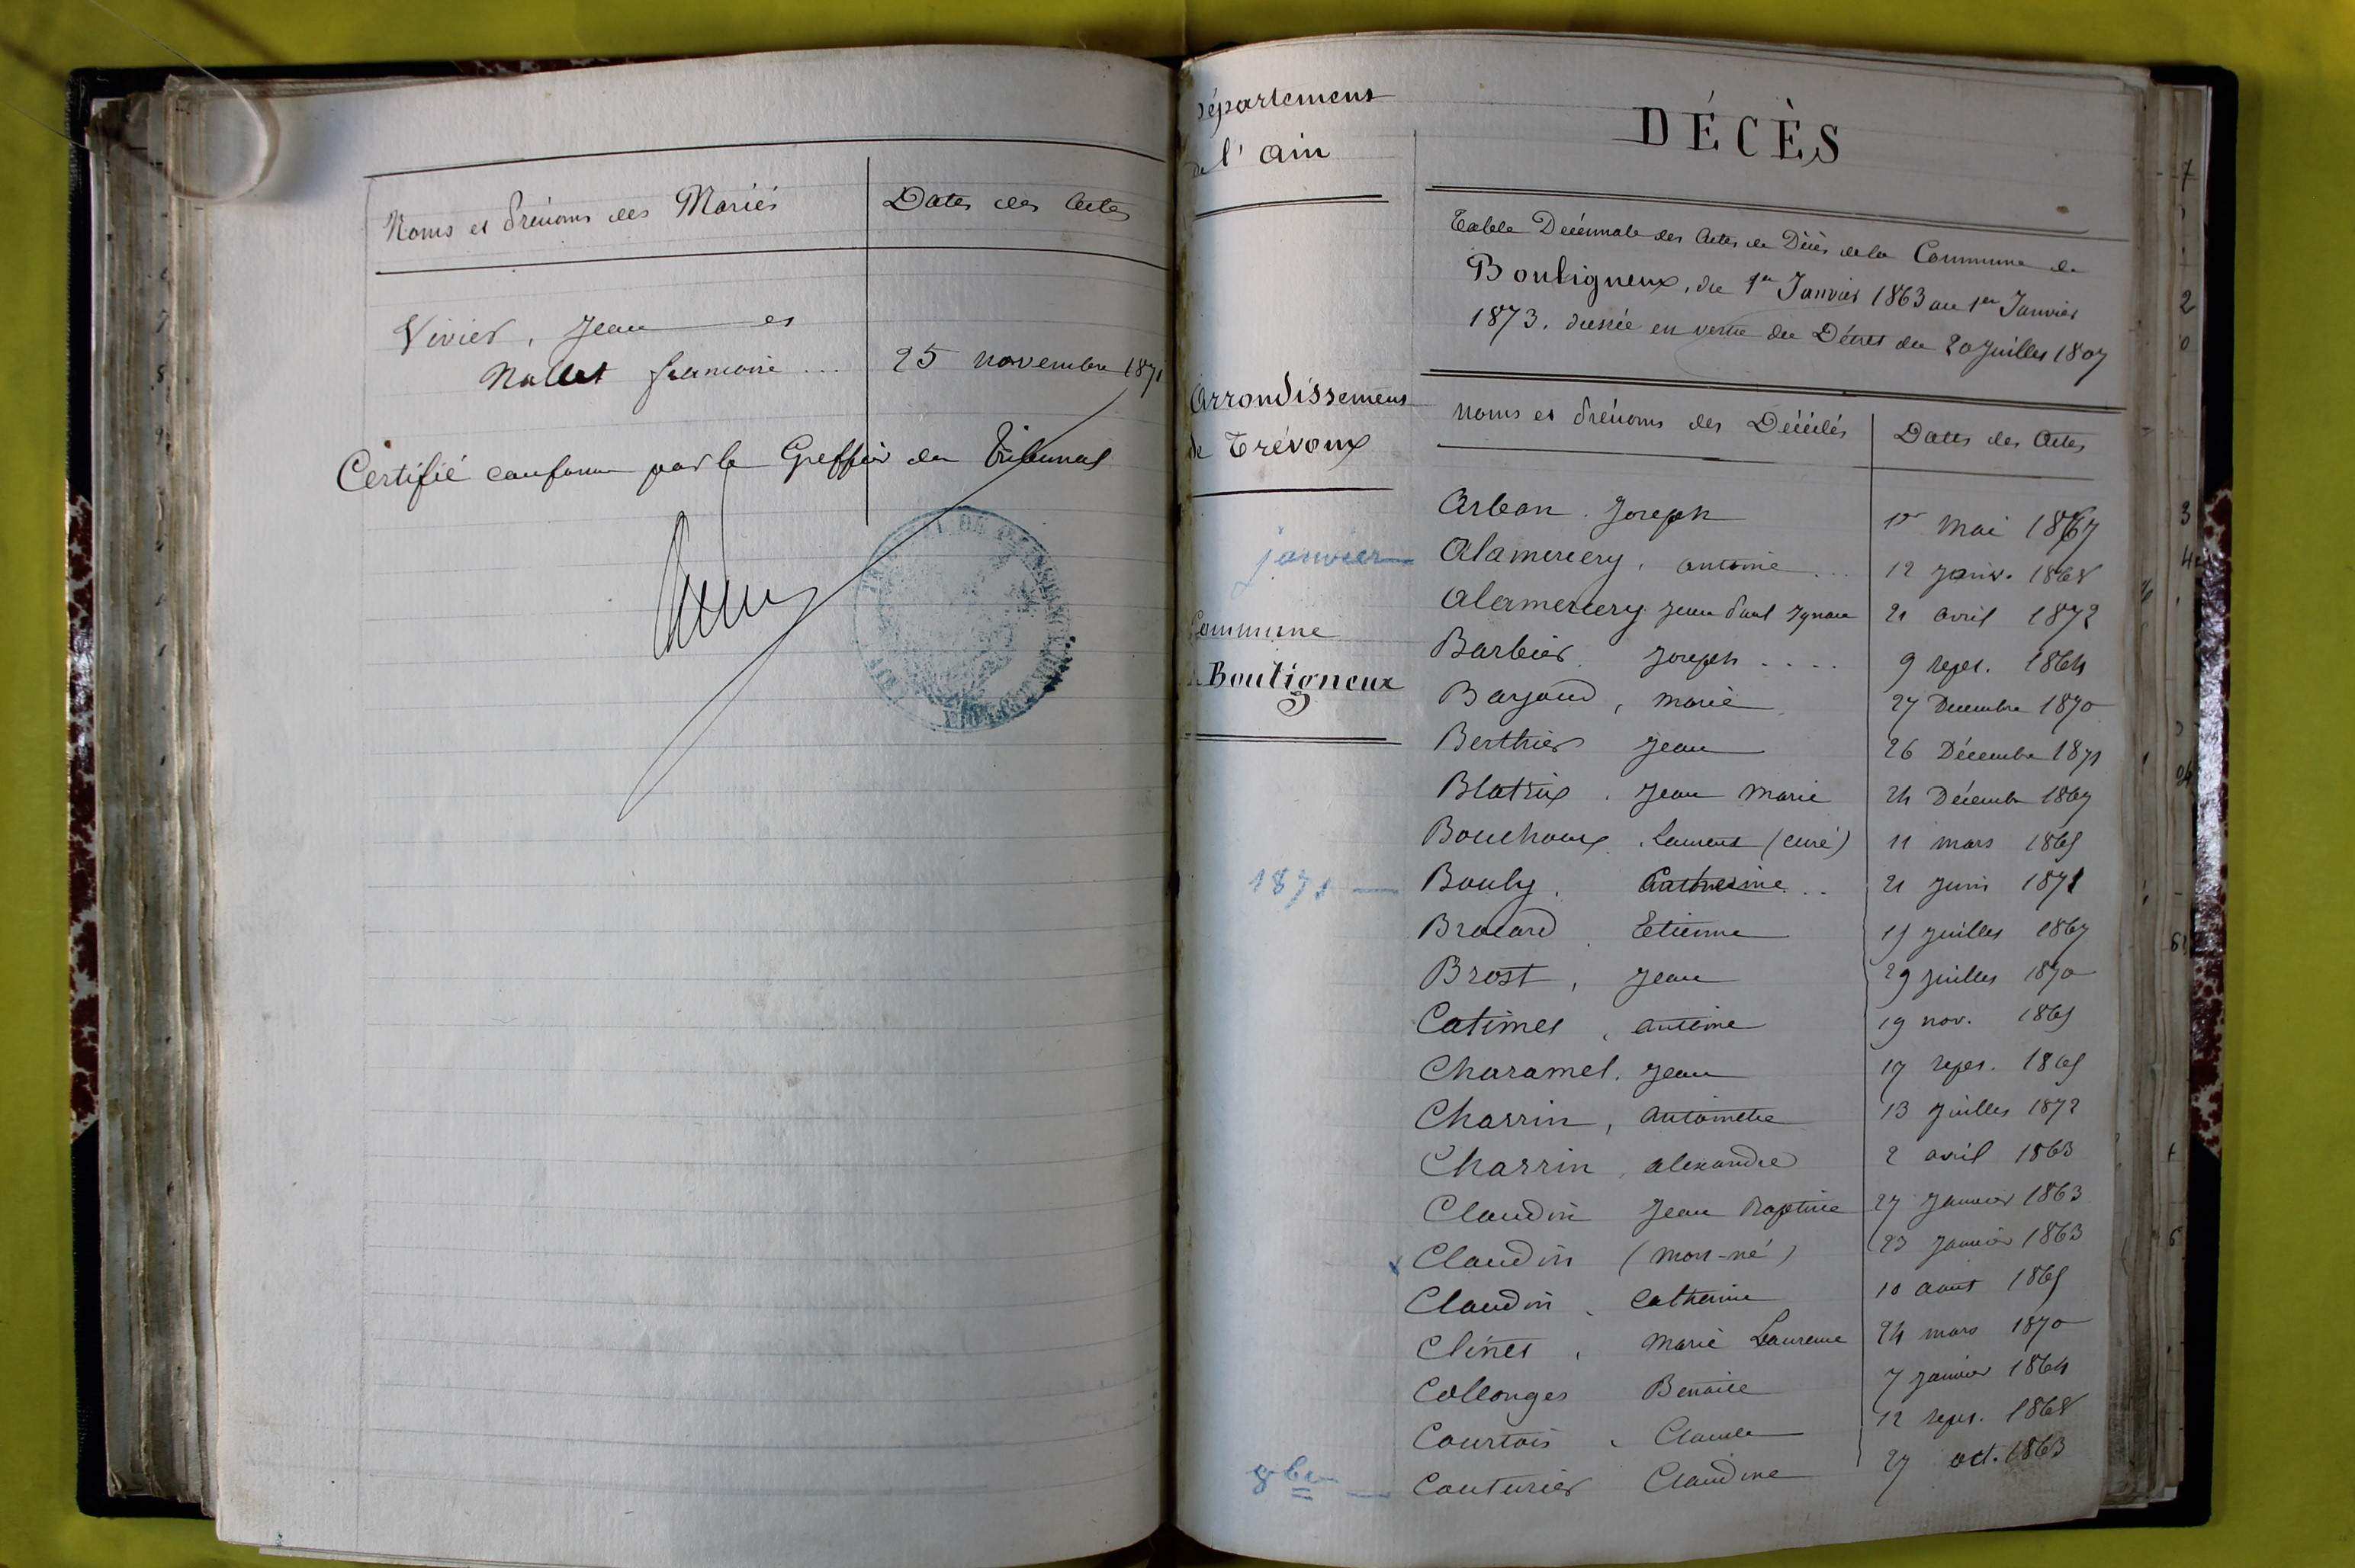 Noms et Prénoms des Mariés
Dates des Actes
Vivier, Jean et
Nallet francoise ...
25 novembre 1871
Certifié conforme par le Greffier du Tribunal
Département
de l'ain
Arrondissement
de Trévoux
janvier
Commune
Bouligneux
1871
8bre
DÉCÈS
Table Décennale des Actes de Décès de la Commune de
Bouligneux, du 1er Janvier 1863 au 1er Janvier
1873, dressée en vertu du Décret du 20 Juillet 1807
Noms et Prénoms des Décédés
Dates des Actes
Arban. Joseph 1er Mai 1867
Alamercery, antoine ... 12 Janv. 1868
Alamercery Jean Paul Ignace 21 avril 1872
Barbier. Joseph .... 9 sept. 1864
Barjaud, Marie 27 Decembre 1870
Berthier Jean 26 Décembre 1871
Blatrix. Jean Marie 24 Décembre 1867
Bouchoux. Laurent (curé) 11 mars 1865
Bouly. Catherine .. 21 Juin 1871
Brocard Etienne 15 Juillet 1867
Brost, Jean 29 Juillet 1870
Catimel, antoine 19 nov. 1865
Charamel. Jean 17 sept. 1865
Charrin, antoinette 13 Juillet 1872
Charrin, alexandre 2 avril 1863
Claudin Jean Baptiste 27 Janvier 1863
Claudin (mort-né) 23 Janvier 1863
Claudin, Catherine 10 aout 1865
Clinet, Marie Laurence 24 mars 1870
Collonges Benoite 7 Janvier 1864
Courtois, Claude 12 sept. 1868
Couturier Claudine 27 oct. 1863